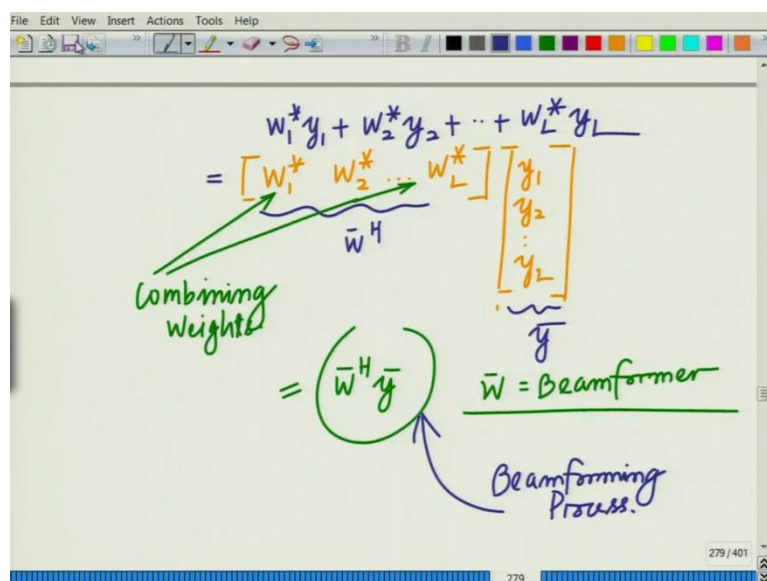 File Edit View Insert Actions Tools Help
B I
w₁*y₁ + w₂*y₂ + ·· + w_L*y_L
= [w₁* w₂* ... w_L*] [y₁ y₂ : y_L]
w̄ᴴ
ȳ
Combining
Weights.
= (w̄ᴴȳ)
w̄ = Beamformer
Beamforming
Process.
279 / 401
279